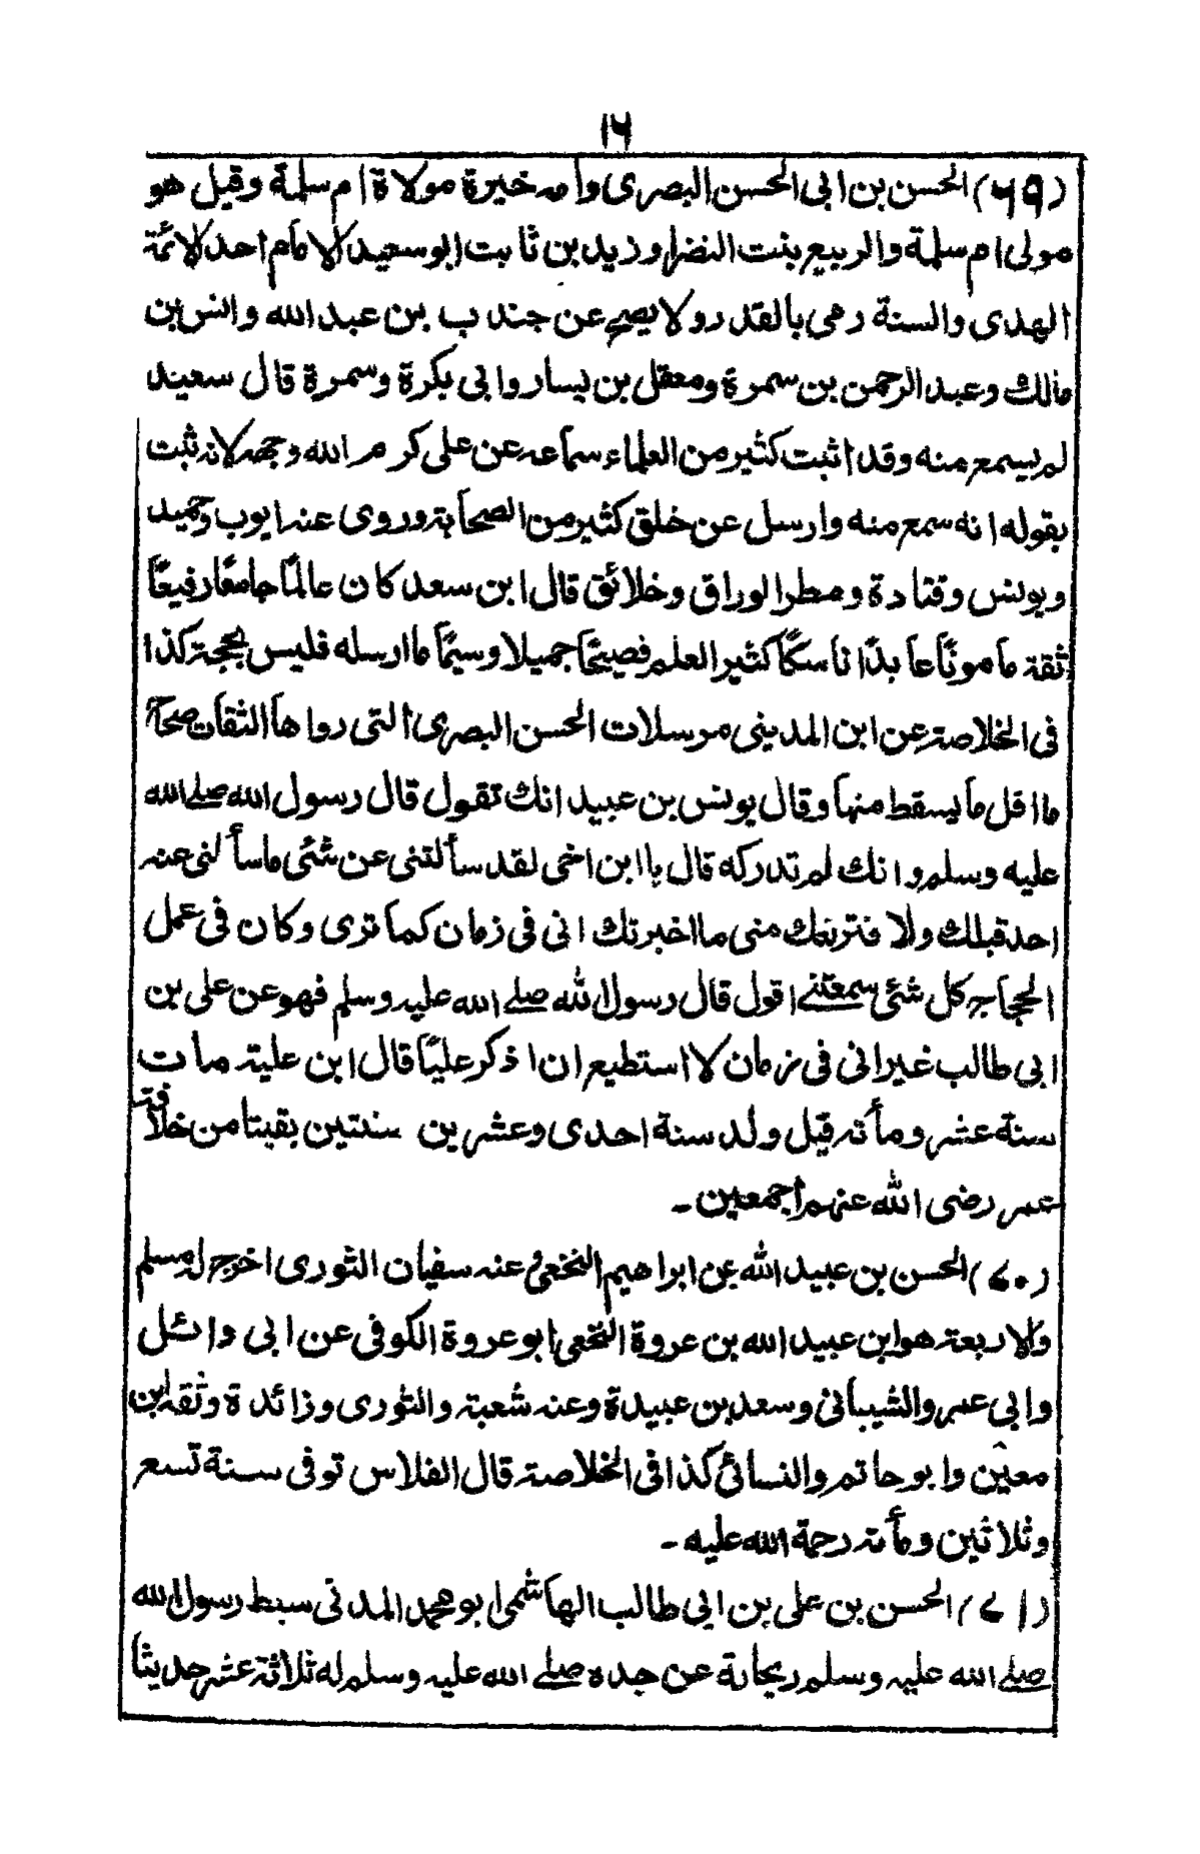 ۱۶
(۶۹) الحسن بن ابی الحسن البصری وامه خیرة مولاة ام سلمة وقیل هو
مولی ام سلمة والربیع بنت النضر او زید بن ثابت ابو سعید الامام احد الائمة
الهدی والسنة رمی بالقدر ولا یصح عن جندب بن عبد الله وانس بن
مالك وعبد الرحمن بن سمرة ومعقل بن یسار وابی بکرة وسمرة قال سعید
لم یسمع منه وقد اثبت کثیر من العلماء سماعه عن علی کرم الله وجهه لانه ثبت
بقوله انه سمع منه وارسل عن خلق کثیر من الصحابة وروی عنه ایوب وحمید
ویونس وقتادة ومطر الوراق وخلائق قال ابن سعد کان عالمًا جامعًا رفیعًا
ثقة مامونًا عابدًا ناسکًا کثیر العلم فصیحًا جمیلا وسیمًا ما ارسله فلیس بحجة کذا
فی الخلاصة عن ابن المدینی مرسلات الحسن البصری التی رواها الثقات صحاح
ما اقل ما یسقط منها وقال یونس بن عبید انك تقول قال رسول الله صلے الله
علیه وسلم وانك لم تدرکه قال یا ابن اخی لقد سألتنی عن شئی ما سألنی عنه
احد قبلك ولا منزلتك منی ما اخبرتك انی فی زمان کما تری وکان فی عمل
الحجاج کل شئی سمعتنے اقول قال رسول الله صلے الله علیه وسلم فهو عن علی بن
ابی طالب غیر انی فی زمان لا استطیع ان اذکر علیًا قال ابن علیة مات
سنة عشر ومأته قیل ولد سنة احدی وعشرین سنتین بقیتا من خلافة
عمر رضی الله عنهم اجمعین۔
(۷۰) الحسن بن عبید الله عن ابراهیم النخعی وعنه سفیان الثوری اخرج له مسلم
والاربعة هو ابن عبید الله بن عروة النخعی ابو عروة الکوفی عن ابی وائل
وابی عمر والشیبانی وسعد بن عبیدة وعنه شعبة والثوری وزائدة وثقه ابن
معین وابو حاتم والنسائی کذا فی الخلاصة قال الفلاس توفی سنة تسع
وثلاثین ومأته رحمة الله علیه۔
(۷۱) الحسن بن علی بن ابی طالب الهاشمی ابو محمد المدنی سبط رسول الله
صلے الله علیه وسلم ریحانة عن جده صلے الله علیه وسلم له ثلاثة عشر حدیثا